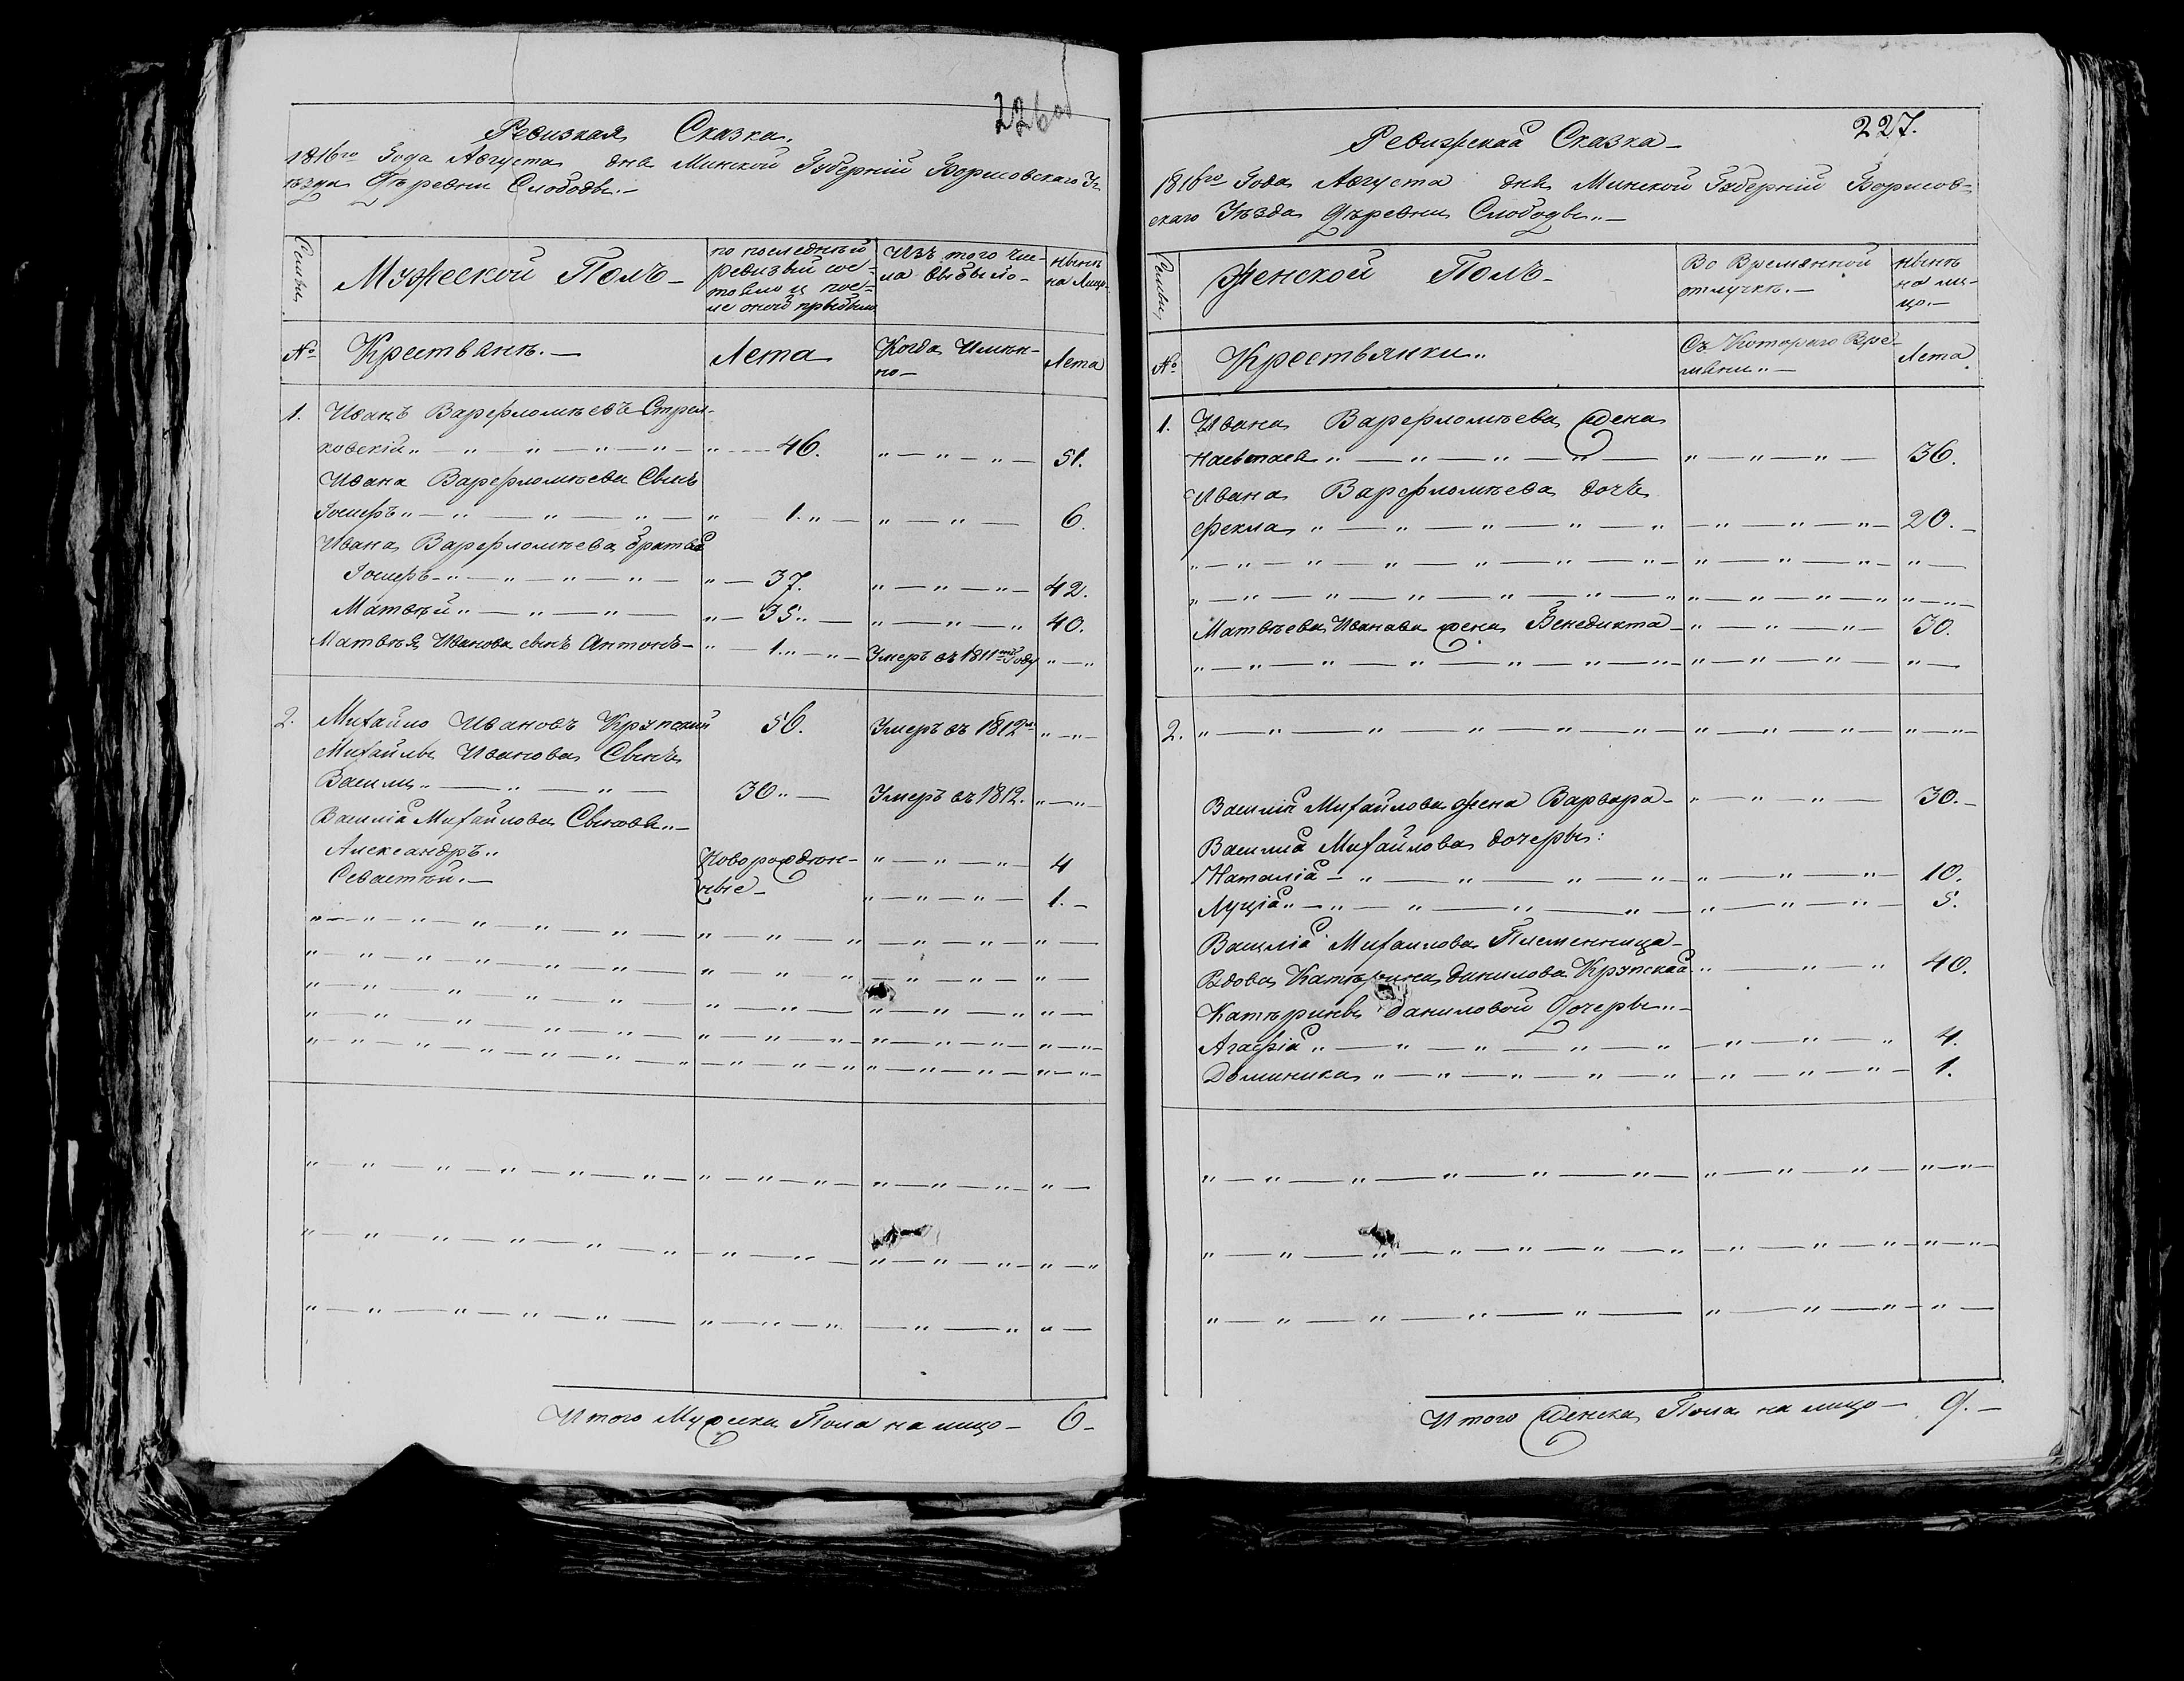 226об
Ревизкая Сказка.
1816го Года Августа дня Минской Губерніи Борисовскаго У-
ѣзда Дѣревни Слободы.—
Семьи
Мужеской Полъ—
по последней
ревизіи сос-
тояло и пос-
ле оной прыбыло
Изъ того чис-
ла выбыло—
Нынѣ
на Лицо
№
Крестьянѣ.—
Лета
Когда Имян-
но—
Лета
1. Иванъ Варфоломѣевъ Стрел-
ковскій „ — „ — „ — 46. „ — „ — „ — 51.
Ивана Варфоломѣева Сынъ
Іосифъ „ — „ — „ — 1. „ — „ — „ — 6.
Ивана Варфоломѣева братья
Іосифъ — „ — „ — „ — 37. „ — „ — „ — 42.
Матвѣй „ — „ — „ — 35. „ — „ — „ — 40.
Матвѣя Иванова сынъ Антонъ — „ — 1. „ — Умеръ въ 1811мъ Году „ — „
2. Михайло Ивановъ Крупскій 56. Умеръ въ 1812м „ — „ —
Михайлы Иванова Сынъ
Василь „ — „ — „ — 30 „ — Умеръ въ 1812. „ — „ —
Василія Михайлова Сыновья „ —
Александръ „ Новорожден- „ — „ — „ — 4
Севастѣй. — ные — „ — „ — „ — 1. —
Итого Мужеска Пола на лицо — 6 —
227.
Ревизская Сказка —
1816го Года Августа дня Минской Губерніи Борисов-
скаго Уѣзда Дѣревни Слободы „ —
Семьи
Женской Полъ —
Во Времянной
отлучкѣ. —
Нынѣ
на ли-
цо. —
№
Крестьянки „
Съ Котораго Вре-
мѣни „ —
Лета
1. Ивана Варфоломѣева Жена
Настася „ — „ — „ — „ — „ — „ — „ — 36.
Ивана Варфоломѣева дочь
Фекла „ — „ — „ — „ — „ — „ — „ — 20. —
Матвѣева Иванова жена Венедикта — „ — „ — „ — 30.
2. „ — „ — „ — „ — „ — „ — „ — „ — „ — „ — „ —
Василія Михайлова жена Варвара — „ — „ — „ — 30. —
Василия Михайлова дочеры:
Наталія — „ — „ — „ — „ — „ — „ — „ — 10.
Луція „ — „ — „ — „ — „ — „ — „ — „ — 5.
Василія Михайлова Племенница —
Вдова Катѣрина Данилова Крупская „ — „ — „ 40.
Катѣрины Даниловой Дочеры „ —
Агафія „ — „ — „ — „ — „ — „ — „ — „ 4.
Доминика „ — „ — „ — „ — „ — „ — „ — „ — 1.
Итого Женска Пола на лицо — 9. —